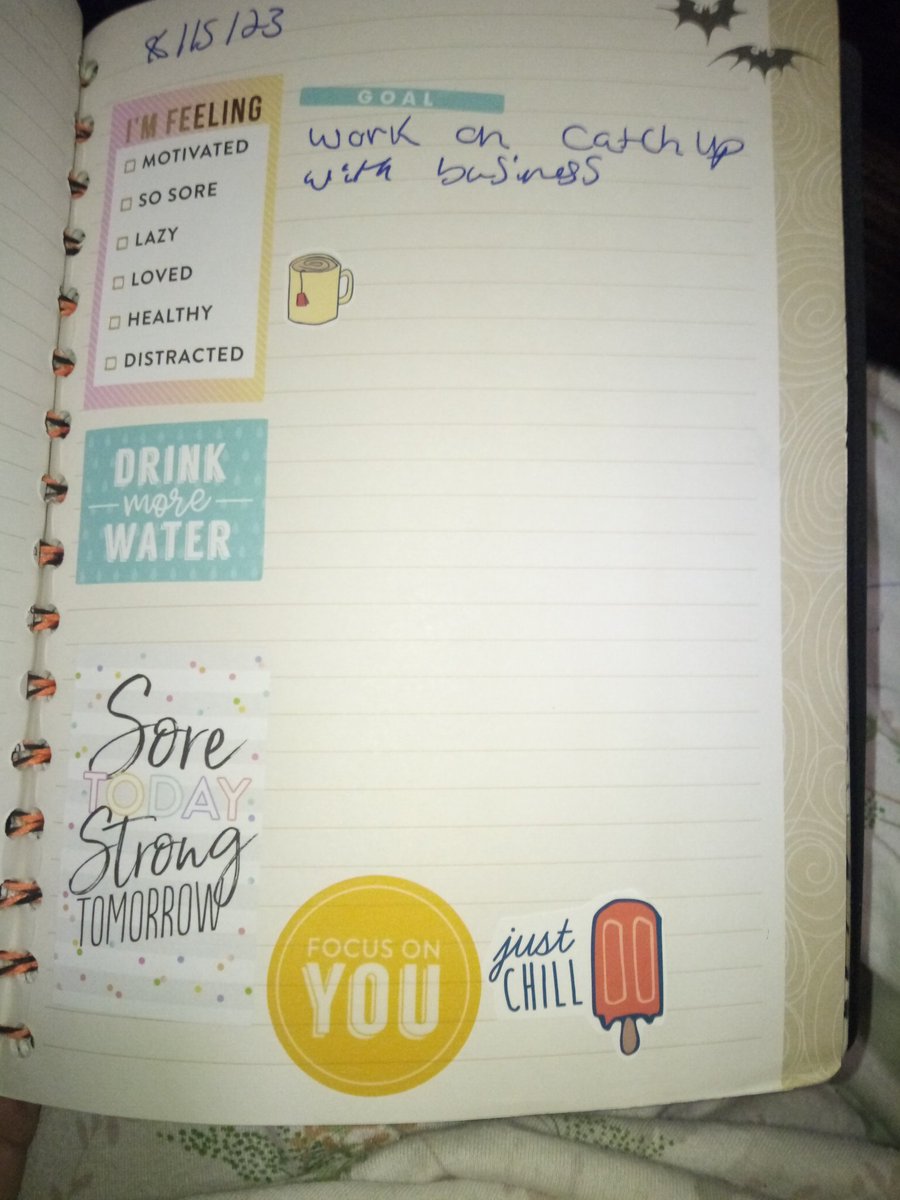 8/15/23
I'M FEELING
MOTIVATED
SO SORE
LAZY
LOVED
HEALTHY
DISTRACTED
GOAL
work on catch up
with business
DRINK
more
WATER
Sore
TODAY
Strong
TOMORROW
FOCUS ON
YOU
just
CHILL